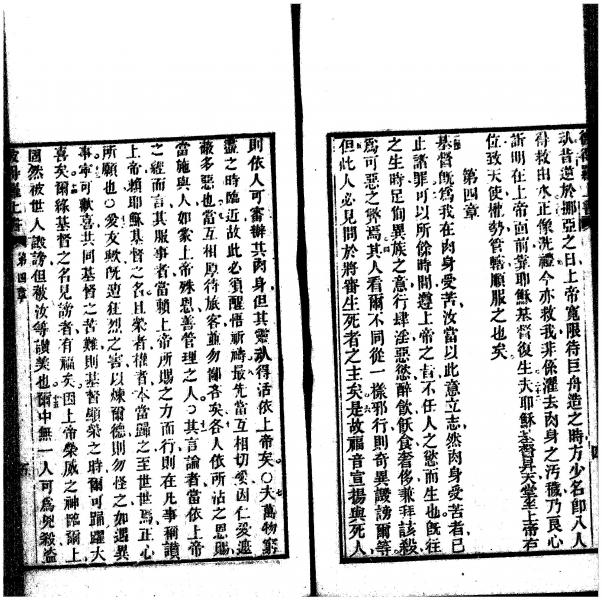 昔逆於挪亞之日上帝寬限待巨舟造之時方少名卽八人
得救由水正像洗禮今亦救我非係濯去肉身之汚穢乃良心
訴明在上帝面前靠耶穌基督復生夫耶穌基督昇天堂至上帝右
位致天使權勢管轄順服之也矣
第四章
基督旣爲我在肉身受苦汝當以此意立志然肉身受苦者已
止諸罪可以所餘時間遵上帝之旨不任人之慾而生也旣往
之生時足徇異族之意行肆淫惡慾醉飮飫食奢侈兼拜該殺
爲可惡之弊焉其人看爾不同從一樣邪行則奇異譏謗爾等
但此人必見問於將審生死者之主矣是故福音宣揚與死人
則依人可審辦其肉身但其靈得活依上帝矣○夫萬物窮
盡之時臨近故此必須醒悟祈禱最先當互相切愛因仁愛遮
最多惡也當互相厚待旅客並勿慳吝矣各人依所沾之恩賜
當施與人如蒙上帝殊恩善管理之人○其言論者當依上帝
之經而言其服事者當賴上帝所賜之力而行則在凡事稱讚
上帝賴耶穌基督之名且榮者權者本當歸之至世世焉正心
所願也○愛友輩旣遭狂烈之害以煉爾德則勿怪之如遇異
事寧可歡喜共同基督之苦難則基督顯榮之時爾可踊躍大
喜矣爾緣基督之名見謗者有福矣因上帝榮威之神臨爾上
固然被世人譭謗但被汝等讚美也爾中無一人可爲兇殺盜
第四章